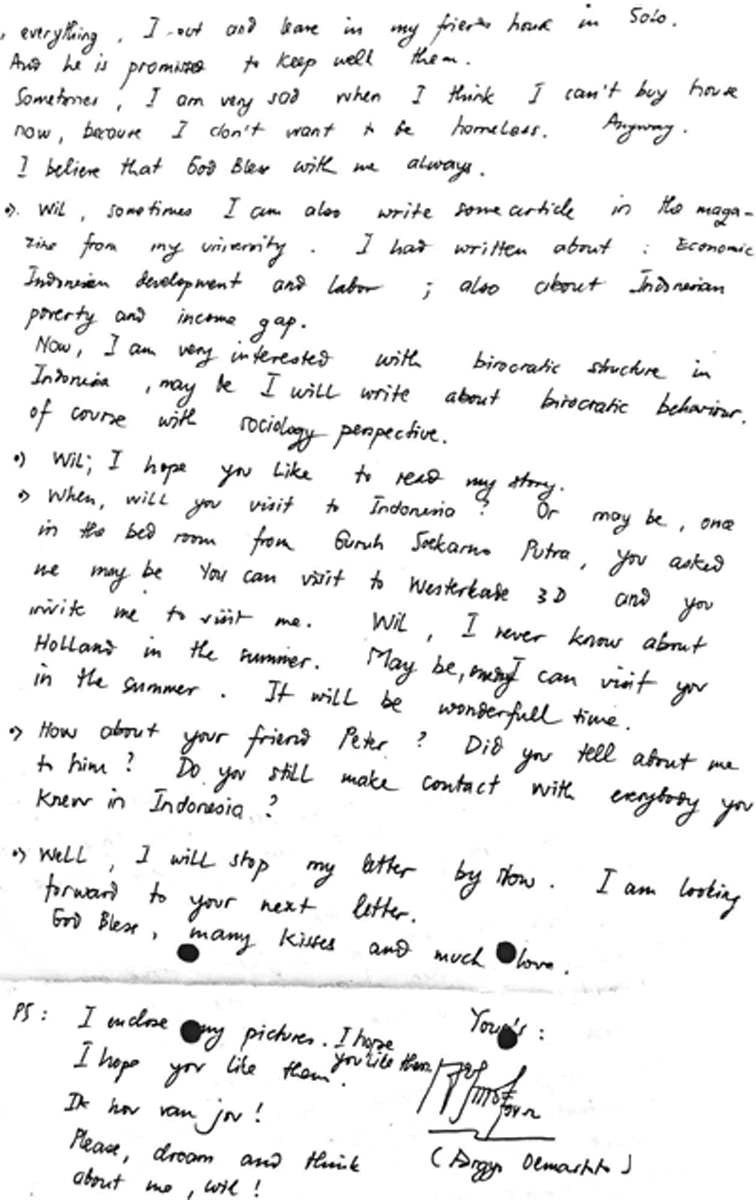 everything, I out and leave in my friend house in Solo.
And he is promised to keep well them.
Sometimes, I am very sad when I think I can't buy house
now, because I don't want to be homeless. Anyway.
I believe that God Bless with me always.
•). Wil, sometimes I am also write some article in the maga-
zine from my university. I had written about : Economic
Indonesian development and labor ; also about Indonesian
poverty and income gap.
Now, I am very interested with birocratic structure in
Indonesia, may be I will write about birocratic behaviour.
of course with sociology perspective.
•) Wil; I hope you like to read my story.
•) When, will you visit to Indonesia? Or may be, once
in the bed room from Guruh Soekarno Putra, you asked
me may be You can visit to Westerkade 3D and you
invite me to visit me. Wil, I never know about
Holland in the summer. May be, I can visit you
in the summer. It will be wonderfull time.
•) How about your friend Peter? Did you tell about me
to him? Do you still make contact with everybody you
knew in Indonesia?
•) Well, I will stop my letter by now. I am looking
forward to your next letter.
God Bless, many kisses and much love.
PS : I enclose my pictures. I hope you like them.
Your's :
I hope you like them.
Ik hou van jou!
Please, dream and think
about me, Wil!
(Argyo Demartoto)